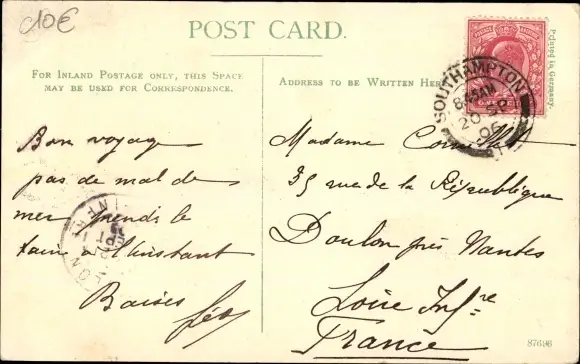 10€
POST CARD.
Printed in Germany.
FOR INLAND POSTAGE ONLY, THIS SPACE
MAY BE USED FOR CORRESPONDENCE.
ADDRESS TO BE WRITTEN HERE
SOUTHAMPTON
8.45AM
20
06
Bon voyage
pas de mal de
mer prends le
train à l'instant
Baises
Madame
35 rue de la République
Doulon près Nantes
Loire Infre
France
87696